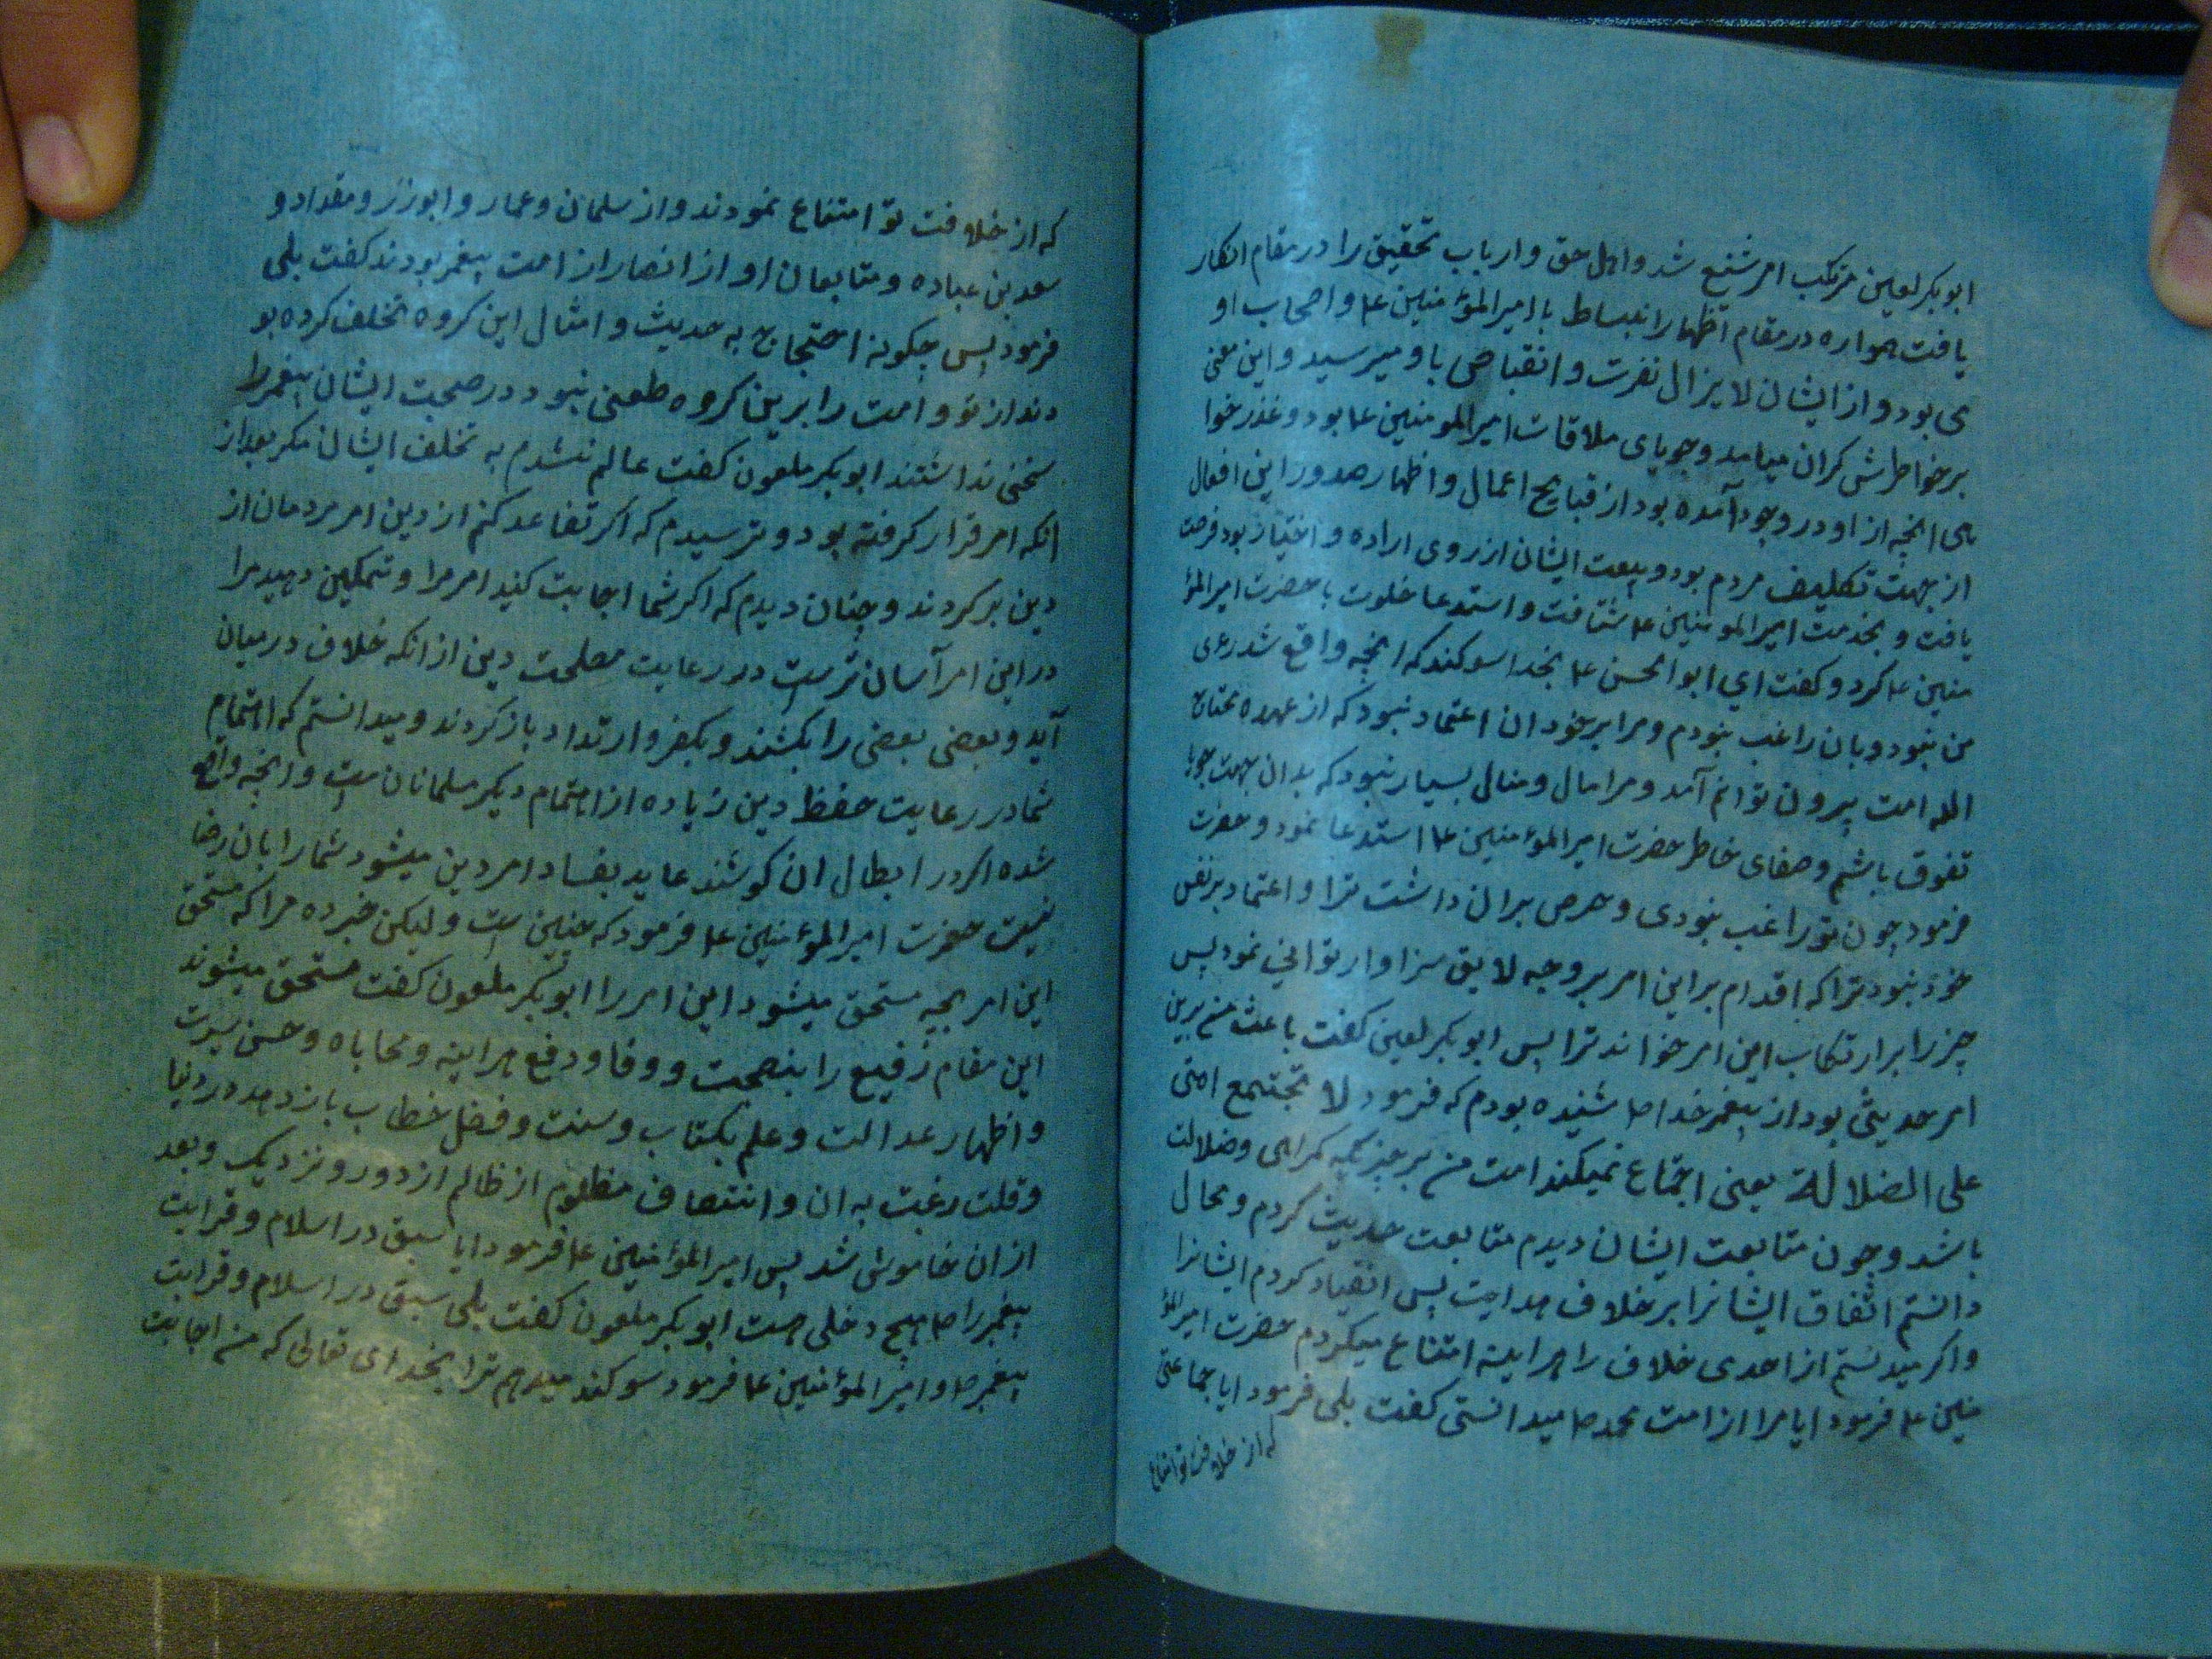 ابوبکر لعین مرتکب امر شنیع شد و اهل حق و ارباب تحقیق را در مقام انکار
یافت همواره در مقام اظهار انبساط با امیرالمؤمنین ع و اصحاب او
می بود و از ایشان لایزال نفرت و انقباضی باو میرسید و این معنی
بر خواطرش گران میامد و جویای ملاقات امیرالمومنین ع بود و عذر خوا
هی انچه از او در وجود آمده بود از قبایح اعمال و اظهار صدور این افعال
از جهت تکلیف مردم بود و بیعت ایشان از روی اراده و اختیار بود فرصت
یافت و بخدمت امیرالمومنین ع شتافت و استدعا خلوت با حضرت امیرالمؤ
منین ع کرد و کفت ای ابوالحسن ع بخدا سوکند که انچه واقع شد رعی
من نبود و بان راغب نبودم و مرا بر خود ان اعتماد نبود که از عهده محتاج
الیه امت بیرون توانم آمد و مرا مال و منالی بسیار نبود که بدان جهت
تفوق باشم و صفای خاطر حضرت امیرالمؤمنین ع استدعا نمود و حضرت
فرمود چون تو راغب نبودی و حرص بران داشت ترا و اعتماد بر نفس
خود نبود ترا که اقدام بر این امر بر وجه لایق سزاوار توانی نمود پس
چز را بر ارتکاب این امر خواند ترا پس ابوبکر لعین کفت باعث من برین
امر حدیثی بود از پیغمبر خدا ص شنیده بودم که فرمود لا تجتمع امتی
علی الضلالة یعنی اجتماع نمیکند امت من بر چیزیکه کمراهی و ضلالت
باشد و چون متابعت ایشان دیدم متابعت حدیث کردم و محال
دانستم اتفاق ایشانرا بر خلاف هدایت پس انقیاد کردم ایشانرا
و اکر میدنستم از احدی خلاف را هراینه امتناع میکردم حضرت امیرالمؤ
منین ع فرمود ایا مرا از امت محمد ص میدانستی کفت بلی فرمود ایا جماعتی
که از خلافت تو امتناع
که از خلافت تو امتناع نمودند و از سلمان و عمار و ابوزر و مقداد و
سعد بن عباده و متابعان او از انصار از امت پیغمبر بودند کفت بلی
فرمود پس چکونه احتجاج به حدیث و امثال این کروه تخلف کرده بو
دند از تو و امت را برین کروه طعنی نبود در صحبت ایشان پیغمبر را
سخنی نداشتند ابوبکر ملعون کفت عالم نشدم به تخلف ایشان مکر بعد از
انکه امر قرار کرفته بود و ترسیدم که اکر تقاعد کنم از دین امر مردمان از
دین بر کردند و چنان دیدم که اکر شما اجابت کنید امر مرا و تمکین دهید مرا
در این امر آسان تر ست در رعایت مصلحت دین از انکه خلاف در میان
آید و بعضی بعضی را بکشند و بکفر و ارتداد باز کردند و میدانستم که اهتمام
شما در رعایت حفظ دین زیاده از اهتمام دیکر مسلمانان ست و انچه واقع
شده اکر در ابطال ان کوشند عاید بفساد امر دین میشود شما را بان رضا
نیست حضرت امیرالمؤمنین ع فرمود که چنین ست ولیکن خبر ده مرا که مستحق
این امر بچه مستحق میشود این امر را ابوبکر ملعون کفت مستحق میشوند
این مقام رفیع را بنصحت و وفا و دفع هراینه و محاباه و حسن سیرت
و اظهار عدالت و علم بکتاب و سنت و فضل خطاب با زهد در دنیا
و قلت رغبت به ان و انتصاف مظلوم از ظالم از دور و نزدیک و بعد
از ان خاموش شد پس امیرالمؤمنین ع فرمود ایا سبق در اسلام و قرابت
پیغمبر را ص هیچ دخلی هست ابوبکر ملعون کفت بلی سبق در اسلام و قرابت
پیغمبر ص و امیرالمؤمنین ع فرمود سوکند میدهم ترا بخدای تعالی که من اجابت